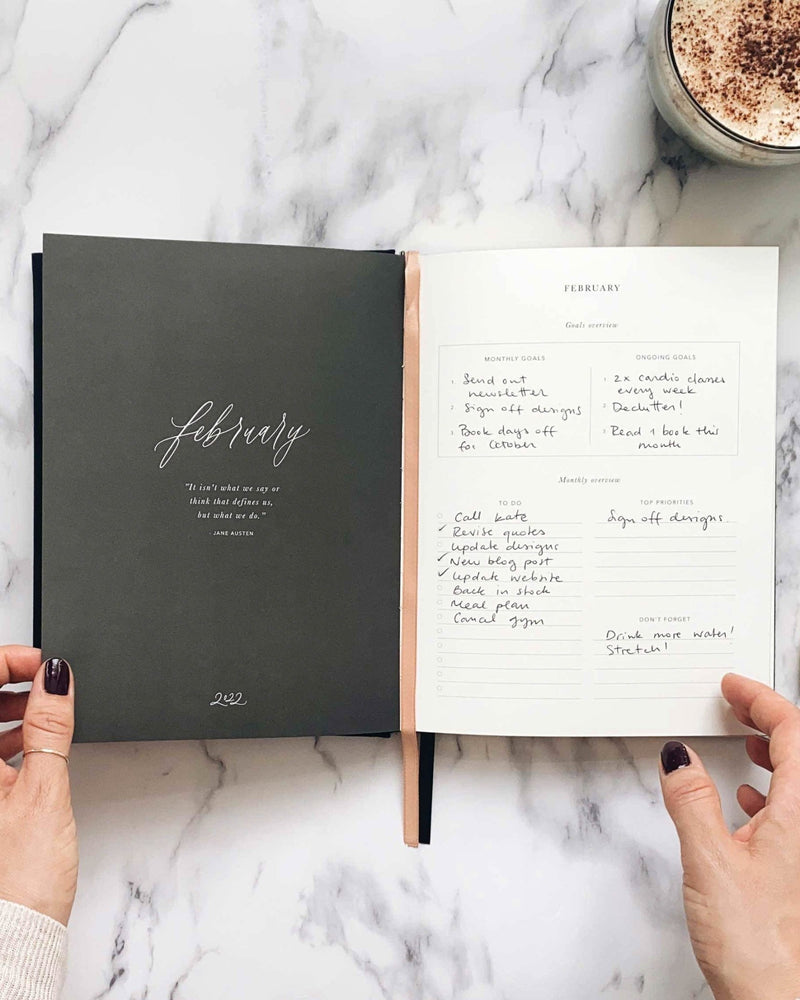 february
"It isn't what we say or
think that defines us,
but what we do."
- JANE AUSTEN
2022
FEBRUARY
Goals overview
MONTHLY GOALS
1. Send out
newsletter
2. Sign off designs
3. Book days off
for October
ONGOING GOALS
1. 2x cardio classes
every week
2. Declutter!
3. Read 1 book this
month
Monthly overview
TO DO
Call Kate
✓ Revise quotes
Update designs
✓ New blog post
✓ Update website
Back in stock
Meal plan
Cancal gym
TOP PRIORITIES
Sign off designs
DON'T FORGET
Drink more water!
Stretch!